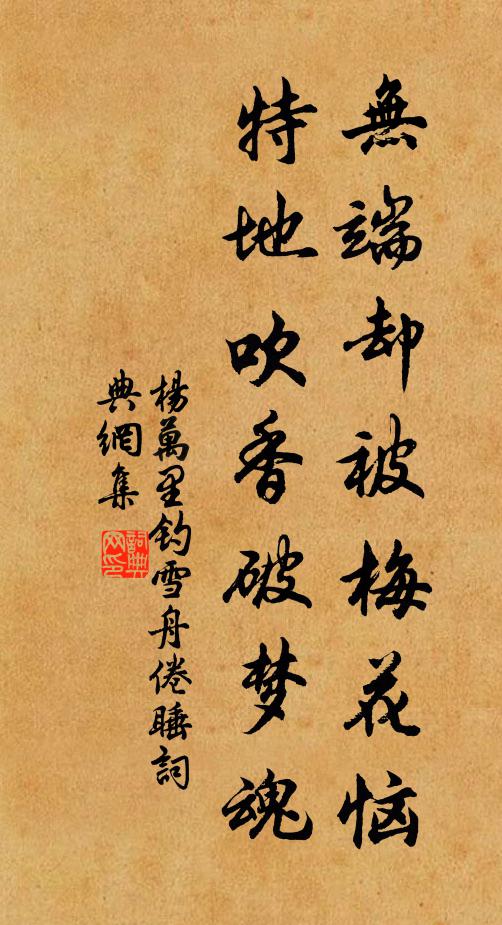 無端却被梅花恼
特地吹香破梦魂
楊萬里釣雪舟倦睡詞
典網集
詞典网印